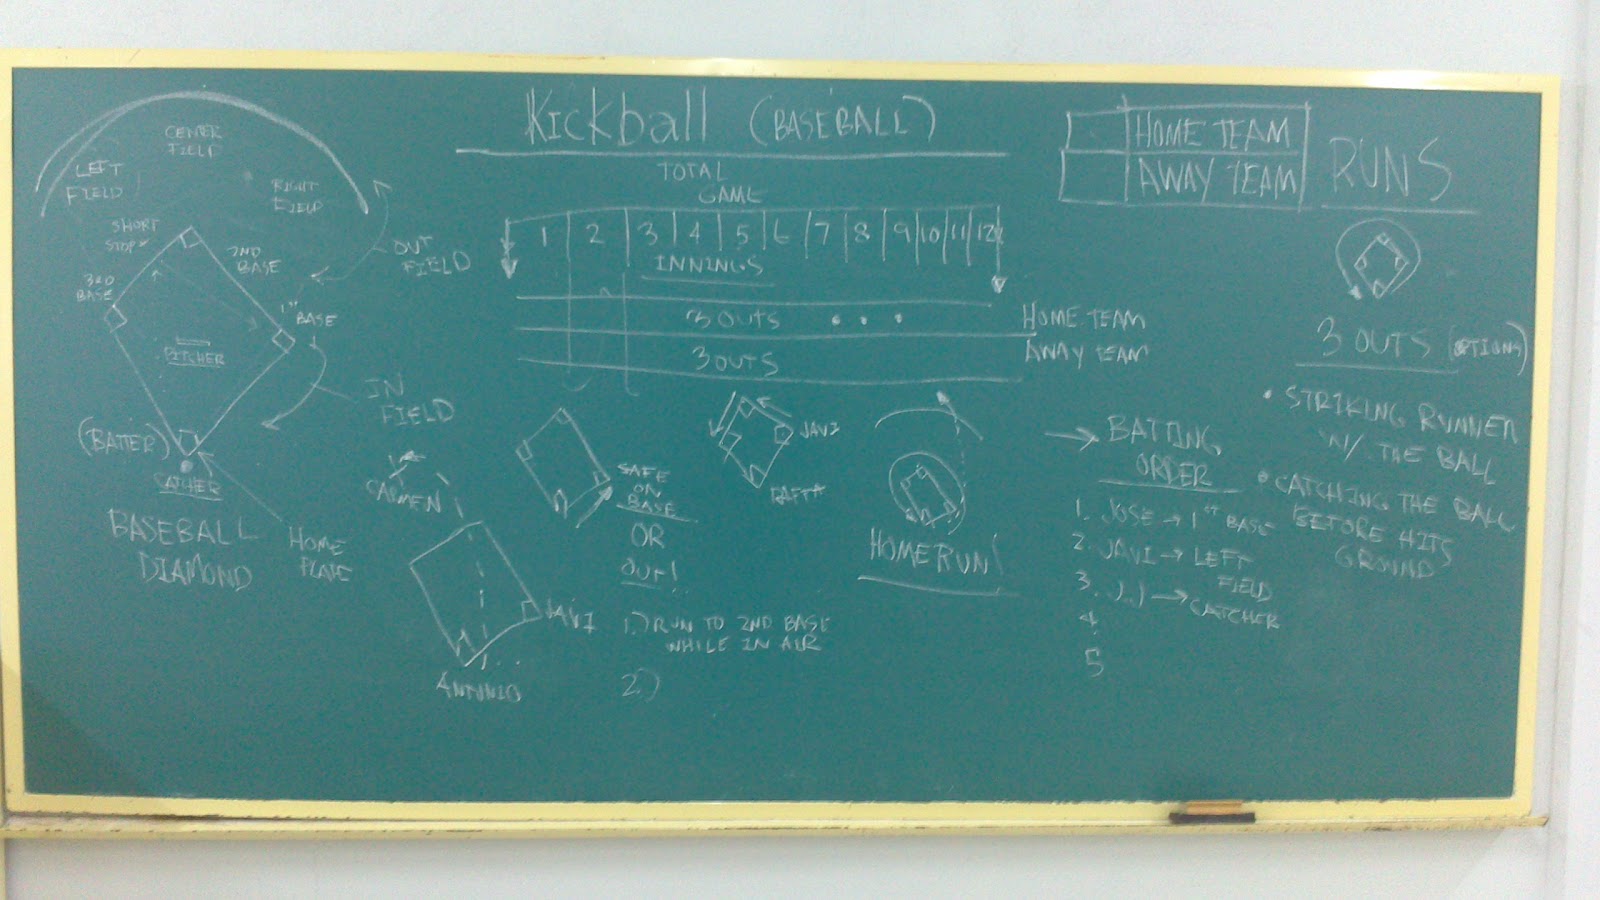 Kickball (BASEBALL)
TOTAL
GAME
1 2 3 4 5 6 7 8 9 10 11 12
INNINGS
3 OUTS . . .
HOME TEAM
3 OUTS
AWAY TEAM
CENTER
FIELD
LEFT
FIELD
RIGHT
FIELD
SHORT
STOP
2ND
BASE
3RD
BASE
1ST
BASE
OUT
FIELD
PITCHER
IN
FIELD
(BATTER)
CATCHER
BASEBALL
DIAMOND
HOME
PLATE
CARMEN
JAVI
ANTONIO
SAFE
ON
BASE
OR
OUT!
1.) RUN TO 2ND BASE
WHILE IN AIR
2.)
JAVI
RAFFA
HOMERUN!
HOME TEAM
AWAY TEAM
RUNS
3 OUTS (OPTIONS)
• STRIKING RUNNER
W/ THE BALL
• CATCHING THE BALL
BEFORE HITS
GROUND
→ BATTING
ORDER
1. JOSE → 1ST BASE
2. JAVI → LEFT
FIELD
3. J..) → CATCHER
4
5